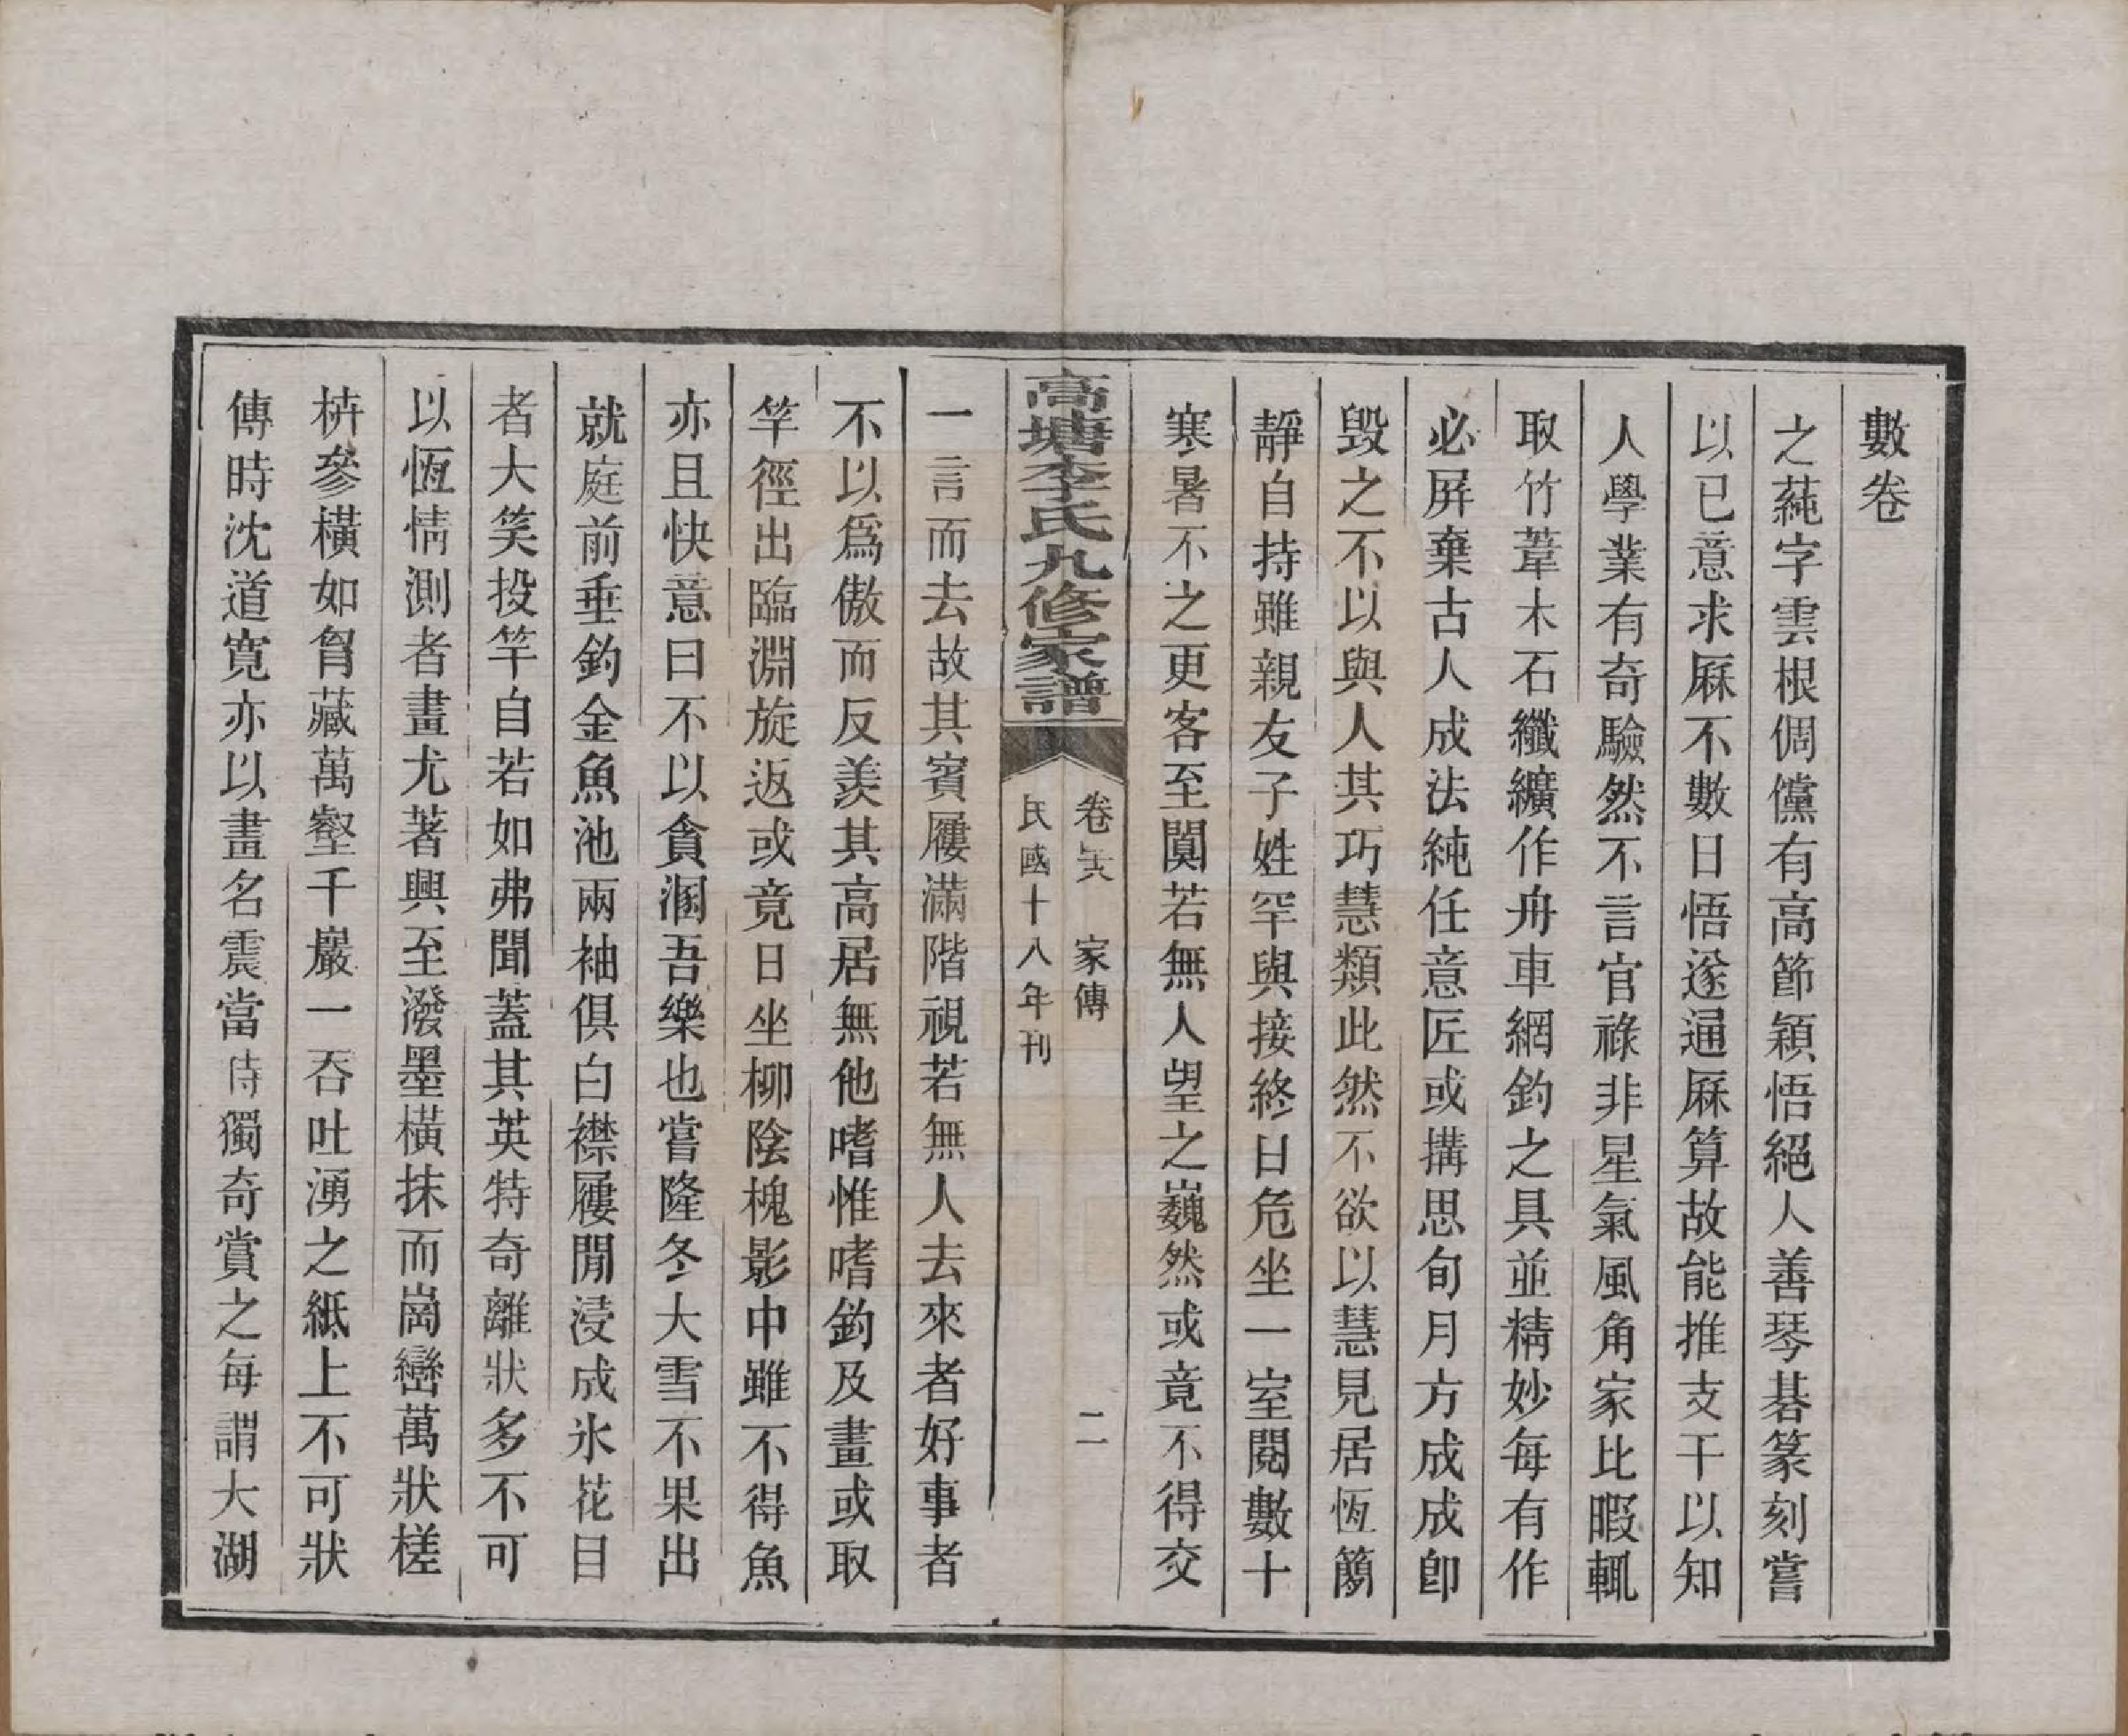 數卷
之蒓字雲根倜儻有高節穎悟絕人善琴碁篆刻嘗
以已意求厤不數日悟遂通厤算故能推支干以知
人學業有奇驗然不言官祿非星氣風角家比暇輒
取竹葦木石纖纊作舟車網釣之具並精妙每有作
必屏棄古人成法純任意匠或搆思旬月方成成卽
毀之不以與人其巧慧類此然不欲以慧見居恆簡
靜自持雖親友子姓罕與接終日危坐一室閱數十
寒暑不之更客至闃若無人望之巍然或竟不得交
高塘李氏九修家譜
卷 家傳
二
民國十八年刊
一言而去故其賓屨滿階視若無人去來者好事者
不以爲傲而反羨其高居無他嗜惟嗜釣及畫或取
竿徑出臨淵旋返或竟日坐柳陰槐影中雖不得魚
亦且快意曰不以貪溷吾樂也嘗隆冬大雪不果出
就庭前垂釣金魚池兩袖俱白襟屨閒浸成氷花目
者大笑投竿自若如弗聞蓋其英特奇離狀多不可
以恆情測者畫尤著興至潑墨橫抹而崗巒萬狀槎
枿參橫如胷藏萬壑千巖一吞吐湧之紙上不可狀
傳時沈道寬亦以畫名震當時獨奇賞之每謂大湖